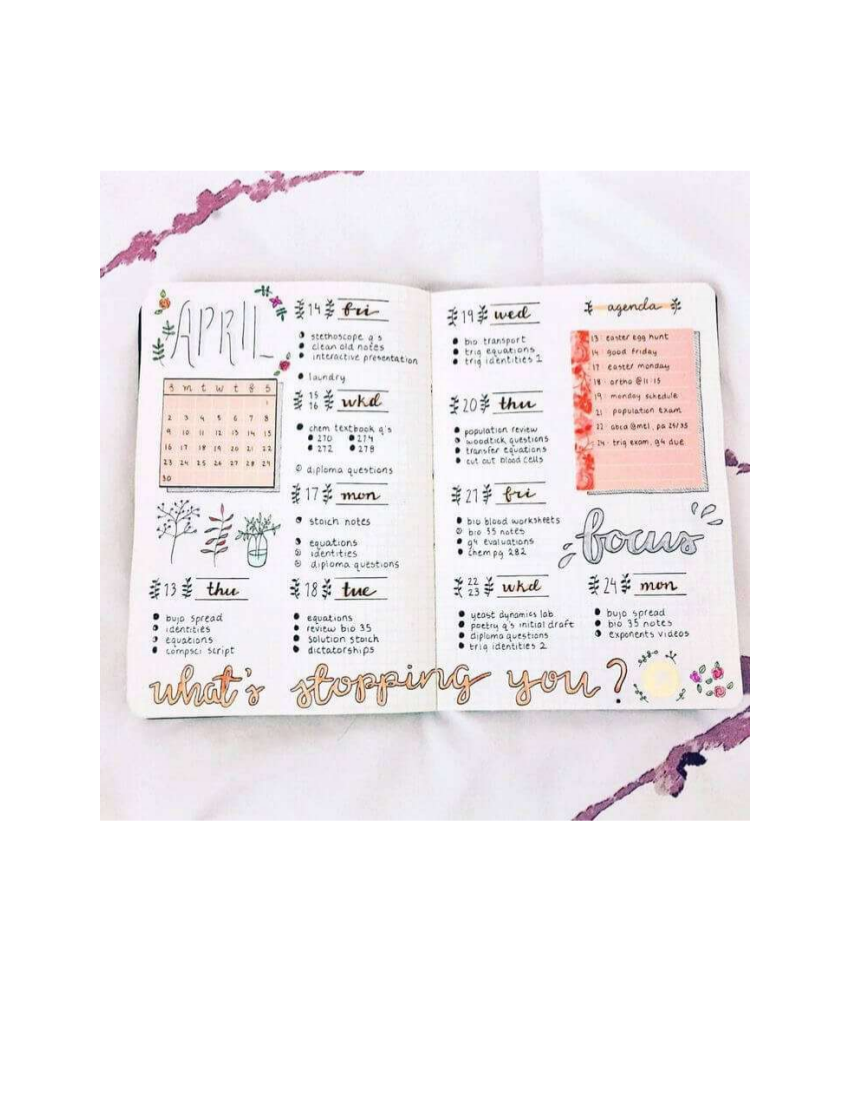 APRIL
s m t w t f s
1
2 3 4 5 6 7 8
9 10 11 12 13 14 15
16 17 18 19 20 21 22
23 24 25 26 27 28 29
30
13 thu
bujo spread
identities
equations
compsci script
14 fri
stethoscope q's
clean old notes
interactive presentation
laundry
15
16 wkd
chem textbook q's
270 274
272 278
diploma questions
17 mon
stoich notes
equations
identities
diploma questions
18 tue
equations
review bio 35
solution stoich
dictatorships
19 wed
bio transport
trig equations
trig identities 2
20 thu
population review
woodtick questions
transfer equations
cut out blood cells
21 fri
bio blood worksheets
bio 35 notes
g4 evaluations
chem pg 282
22
23 wkd
yeast dynamics lab
poetry q's initial draft
diploma questions
trig identities 2
agenda
13 easter egg hunt
14 good friday
17 easter monday
18 ortho @ 11:15
19 monday schedule
21 population exam
22 abca @ mtl, pg 25/35
24 trig exam, g4 due
focus
24 mon
bujo spread
bio 35 notes
exponents videos
what's stopping you?